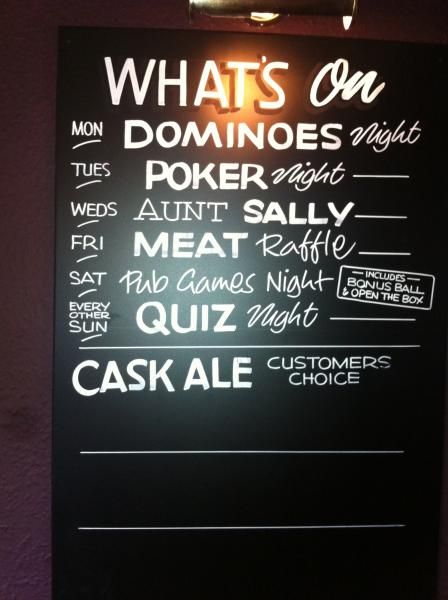 WHAT'S On
MON DOMINOES Night
TUES POKER Night
WEDS AUNT SALLY
FRI MEAT Raffle
SAT Pub Games Night INCLUDES BONUS BALL & OPEN THE BOX
EVERY OTHER SUN QUIZ Night
CASK ALE CUSTOMERS CHOICE